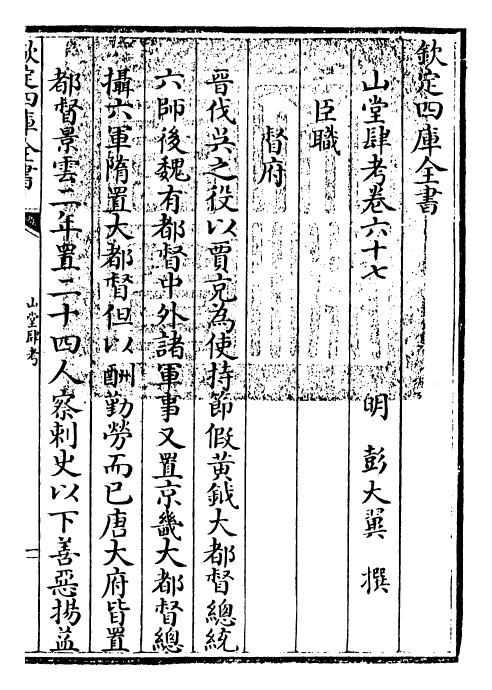 欽定四庫全書
山堂肆考卷六十七　明　彭大翼　撰
臣職
督府
晉伐吳之役以賈充為使持節假黃鉞大都督總統
六師後魏有都督中外諸軍事又置京畿大都督總
攝六軍隋置大都督但以酬勤勞而已唐大府皆置
都督景雲二年置二十四人察刺史以下善惡揚益
欽定四庫全書
山堂肆考
一